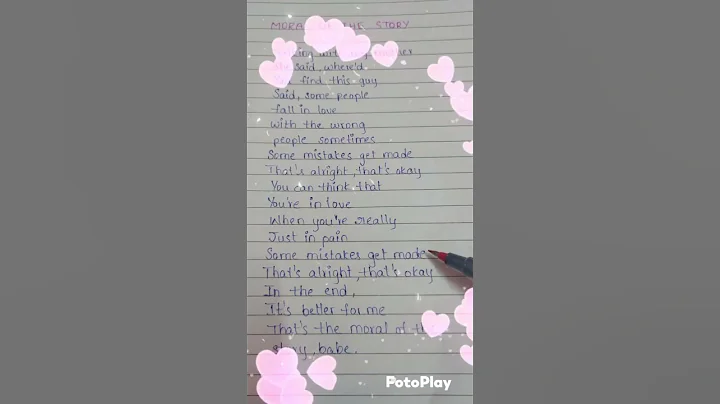 MORAL OF THE STORY
Talking with my mother
She said, where'd
You find this guy
Said, some people
fall in love
with the wrong
people sometimes
Some mistakes get made
That's alright, that's okay
You can think that
You're in love
When you're really
Just in pain
Some mistakes get made
That's alright, that's okay
In the end,
It's better for me
That's the moral of the
story, babe.
PotoPlay